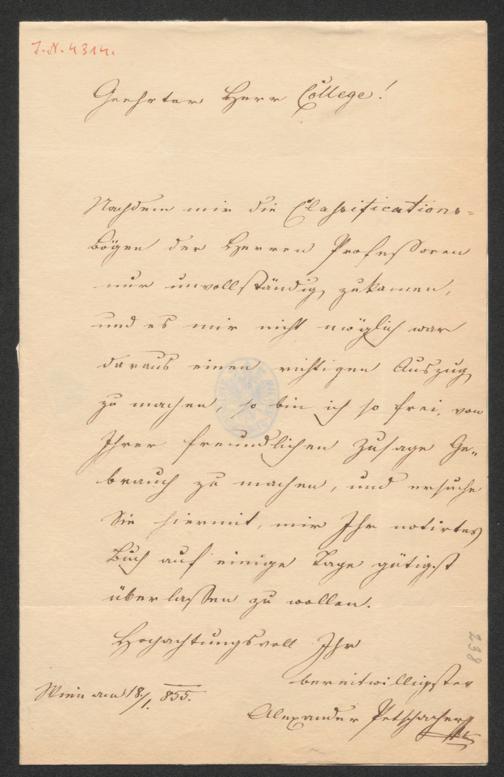 J. N. 4314.
Geehrter Herr College!
Nachdem mir die Classifications-
bögen der Herren Professoren
nur unvollständig zukamen,
und es mir nicht möglich war
daraus einen richtigen Auszug
zu machen, so bin ich so frei, von
Ihrer freundlichen Zusage Ge-
brauch zu machen, und ersuche
Sie hiermit, mir Ihr notirtes
Buch auf einige Tage gütigst
überlassen zu wollen.
Hochachtungsvoll Ihr
bereitwilligster
Wien am 18/1. 855.
Alexander Petschacher
238